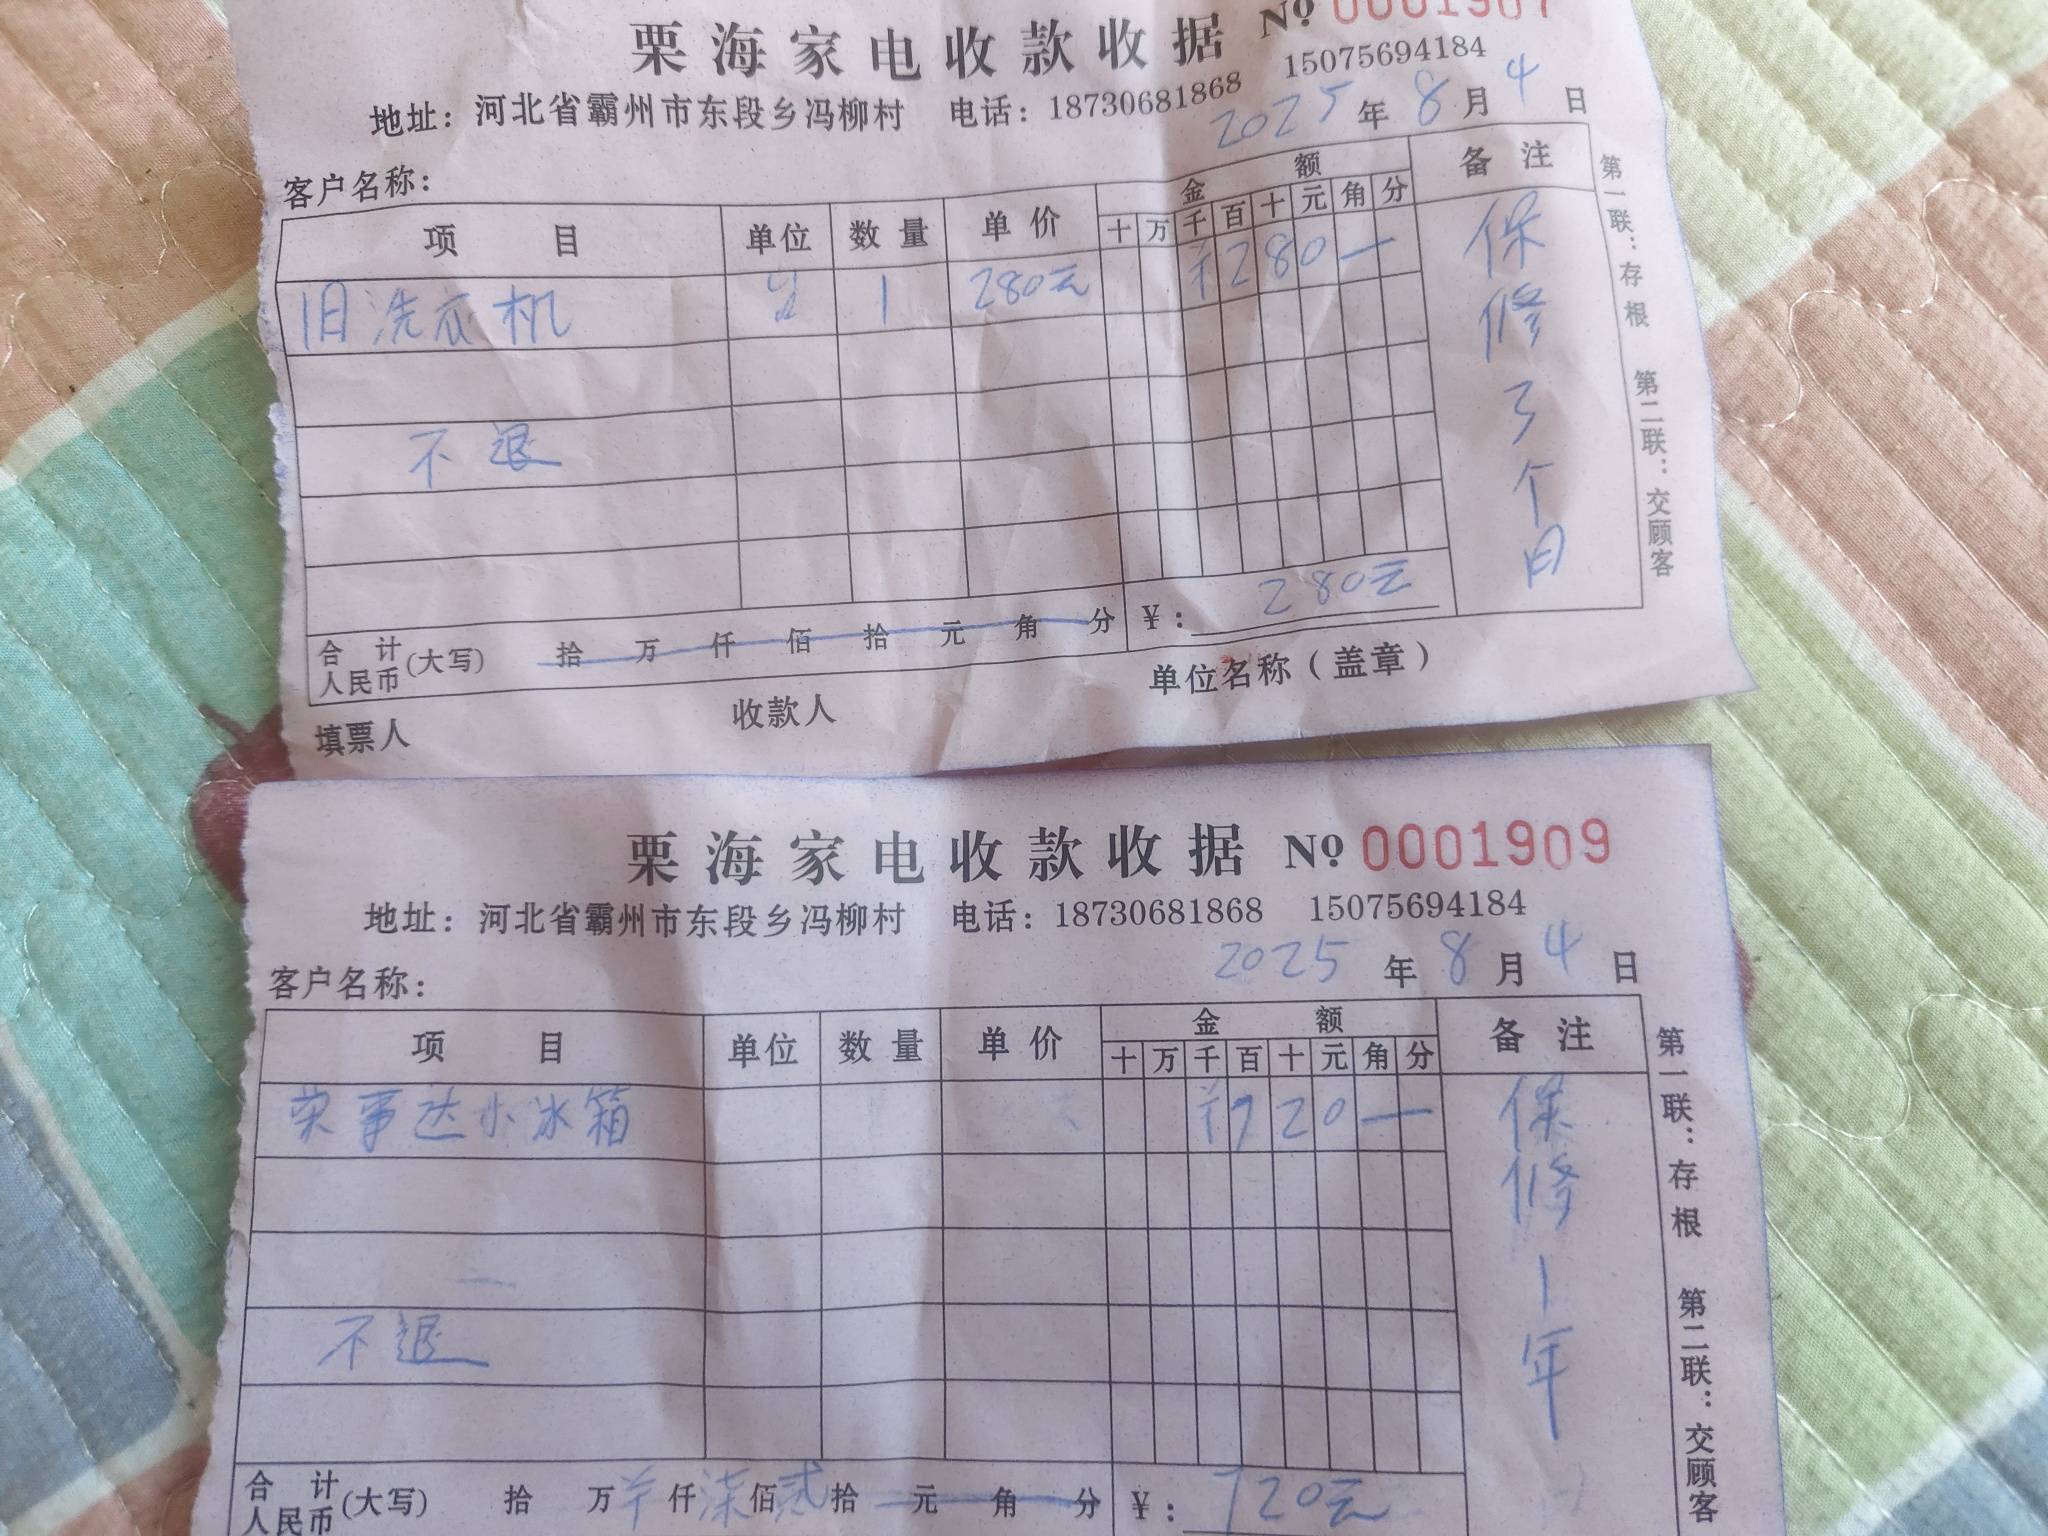 栗海家电收款收据 №0001907
地址：河北省霸州市东段乡冯柳村 电话：18730681868 15075694184
2025年8月4日
客户名称：
项目 单位 数量 单价 金额 备注
十万千百十元角分
旧洗衣机 1 280元 ¥280—
保修3个月
不退
合计人民币(大写) 拾万仟佰拾元角分 ¥：280元
填票人 收款人 单位名称（盖章）
第一联：存根 第二联：交顾客
栗海家电收款收据 №0001909
地址：河北省霸州市东段乡冯柳村 电话：18730681868 15075694184
2025年8月4日
客户名称：
项目 单位 数量 单价 金额 备注
十万千百十元角分
荣事达小冰箱 ¥720—
保修1年
不退
合计人民币(大写) 拾万¥仟柒佰贰拾元角分 ¥：720元
第一联：存根 第二联：交顾客